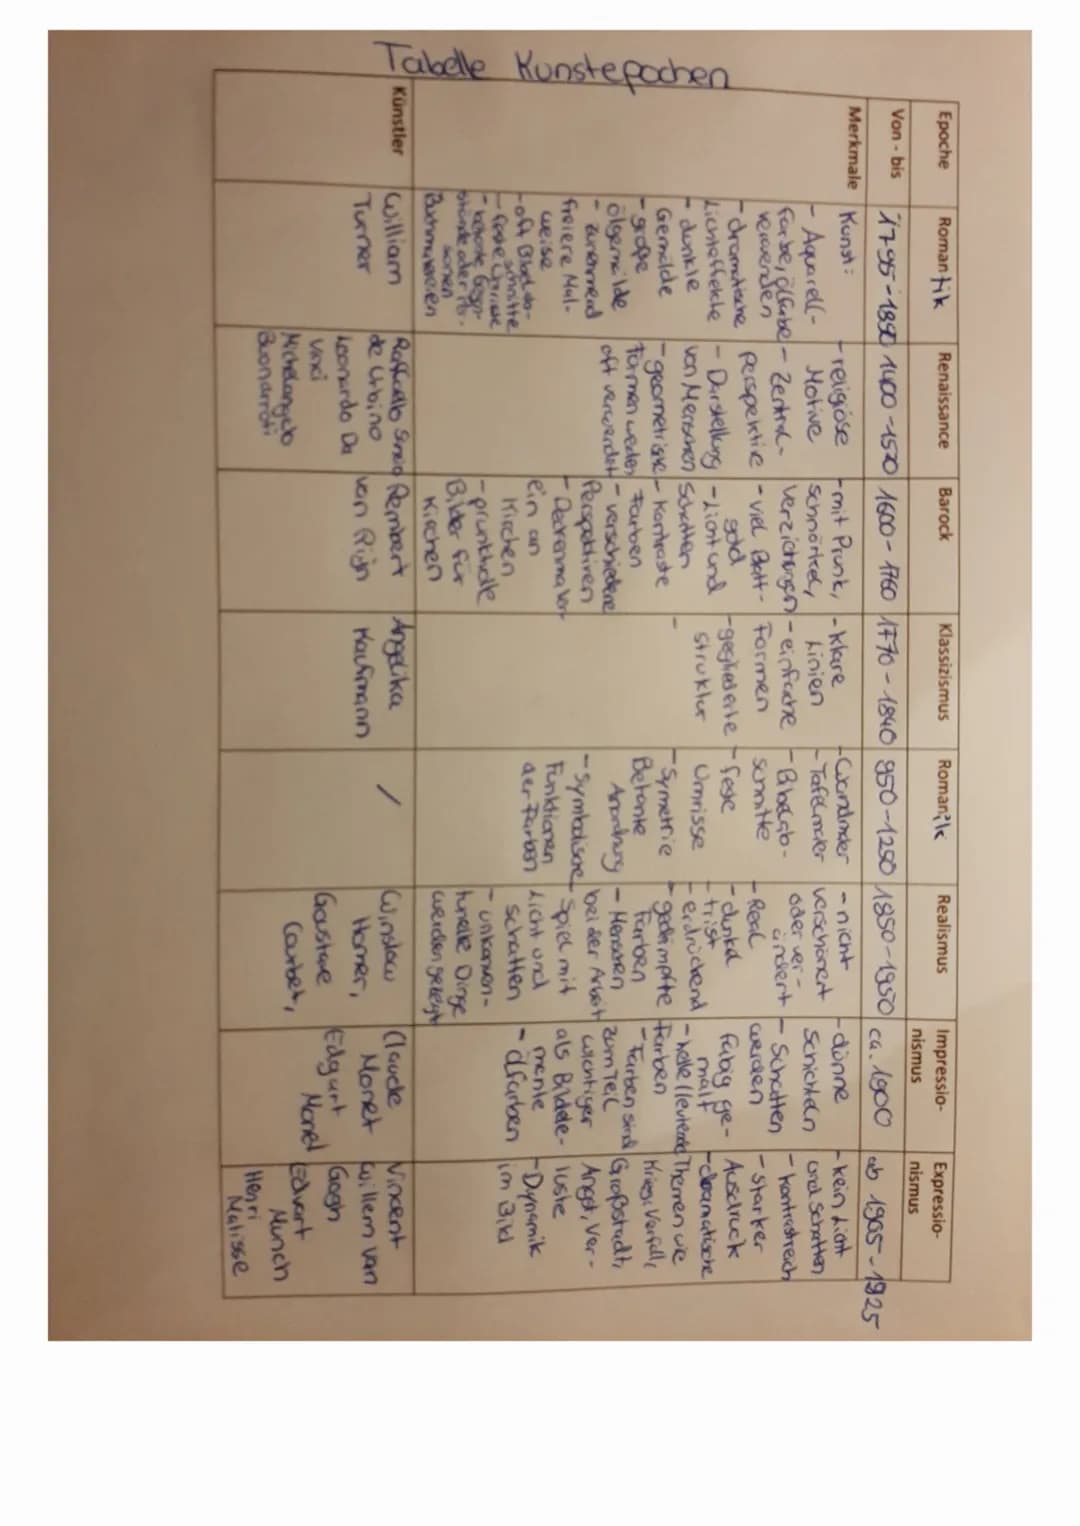 Tabelle Kunstepochen
Epoche
Romantik
Renaissance
Barock
Klassizismus
Romanik
Realismus
Impressio-
nismus
Expressio-
nismus
Von - bis
1795-1850
1400-1570
1600-1760
1770-1840
950-1250
1850-1950
ca. 1900
ab 1905-1925
Merkmale
Kunst:
- Aquarell-
farbe, Ölfarbe
verwenden
- dramatische
Lichteffekte
- dunkle
Gemälde
- große
Ölgemälde
- zunehmend
freiere Mal-
weise
- oft Bibelab-
schnitte
- feste Umrisse
- religiöse
Motive
- Zentral-
perspektive
- Darstellung
von Menschen
- geometrische
Formen werden
oft verwendet
- mit Prunk,
schnörkel,
verziehrungen
- viel Blatt-
gold
- Licht und
Schatten
- Kontraste
Farben
- verschiedene
Perspektiven
- Deckenmaler-
ein an
Kirchen
- prunkvolle
Bilder für
Kirchen
- klare
Linien
- einfache
Formen
- gegliederte
struktur
-
- Wandmaler
- Tafelmaler
- Bibelab-
schnitte
- feste
Umrisse
- Symetrie
Betonte
Anordnung
- symbolische
Funktionen
der Farben
- nicht
verschönert
oder ver-
ändert
- Real
- dunkel
- trist
- erdrückend
- gedämpfte
Farben
- Menschen
bei der Arbeit
- Spiel mit
Licht und
schatten
- unkonven-
tunelle Dinge
werden gezeigt
- dünne
Schichten
- Schatten
werden
fabig ge-
malt
- helle/leutende
Farben
- Farben sind
zum Teil
wichtiger
als Bildele-
mente
- Ölfarben
- kein Licht
und Schatten
- kontrastreich
- starker
Ausdruck
- dramatische
Themen wie
Krieg, Verfall,
Großstadt,
Angst, Ver-
luste
- Dynamik
im Bild
Künstler
William
Turner
Raffaello Sanzio
de Urbino
Leonardo Da
Vinci
Michelangelo
Buonarroti
Rembert
van Rijn
Angelika
Kaufmann
/
Winslow
Homer,
Gaustave
Courbet,
Claude
Monet
Edgart
Manet
Vincent
Willem van
Gogh
Edvart
Munch
Henri
Matisse